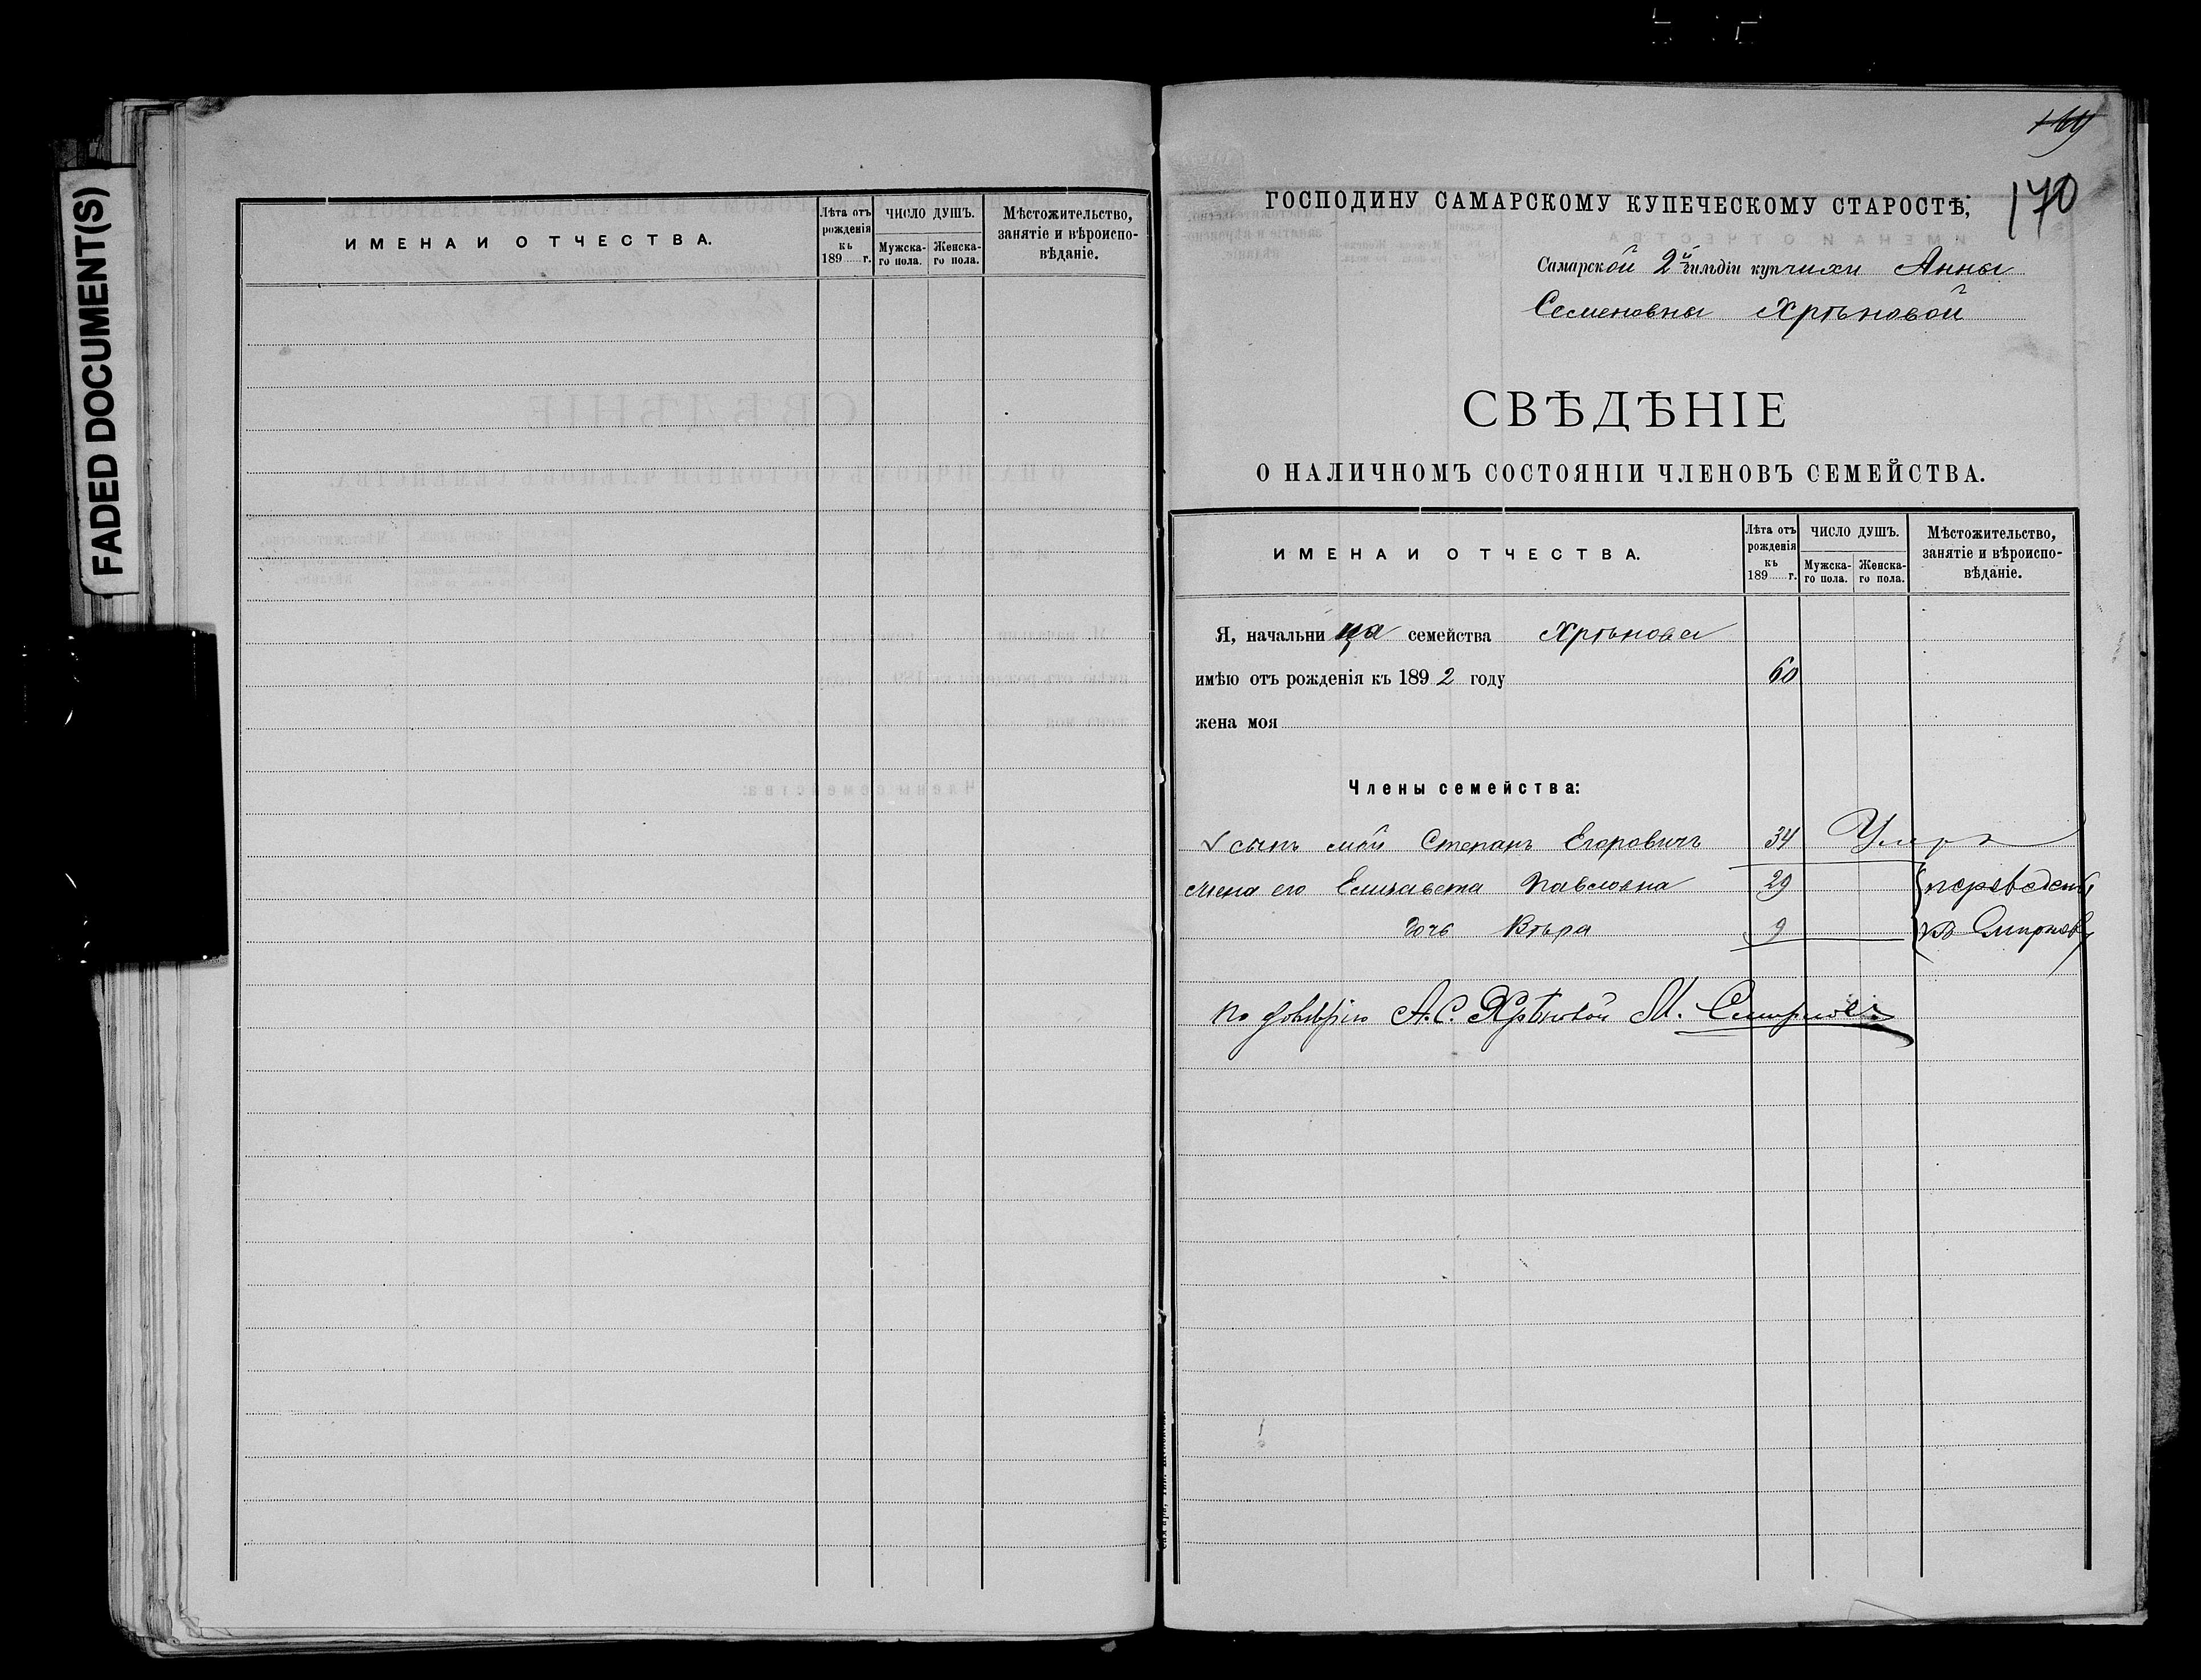 FADED DOCUMENT(S)
ИМЕНА И ОТЧЕСТВА.
Лѣта отъ рожденія къ 189 г.
ЧИСЛО ДУШЪ.
Мужска-го пола.
Женска-го пола.
Мѣстожительство, занятіе и вѣроиспо-вѣданіе.
169
170
ГОСПОДИНУ САМАРСКОМУ КУПЕЧЕСКОМУ СТАРОСТѢ,
Самарской 2й гильдіи купчихи Анны
Семеновны Хрѣновой
СВѢДѢНІЕ
О НАЛИЧНОМЪ СОСТОЯНІИ ЧЛЕНОВЪ СЕМЕЙСТВА.
ИМЕНА И ОТЧЕСТВА.
Лѣта отъ рожденія къ 189 г.
ЧИСЛО ДУШЪ.
Мужска-го пола.
Женска-го пола.
Мѣстожительство, занятіе и вѣроиспо-вѣданіе.
Я, начальница семейства Хрѣнова
имѣю отъ рожденія къ 1892 году 60
жена моя
Члены семейства:
сынъ мой Степанъ Егоровичъ 34 Умеръ
жена его Елизавета Павловна 29 переведены
дочь Вѣра 9 къ Смирнову
по довѣрію А. С. Хрѣновой М. Смирновъ